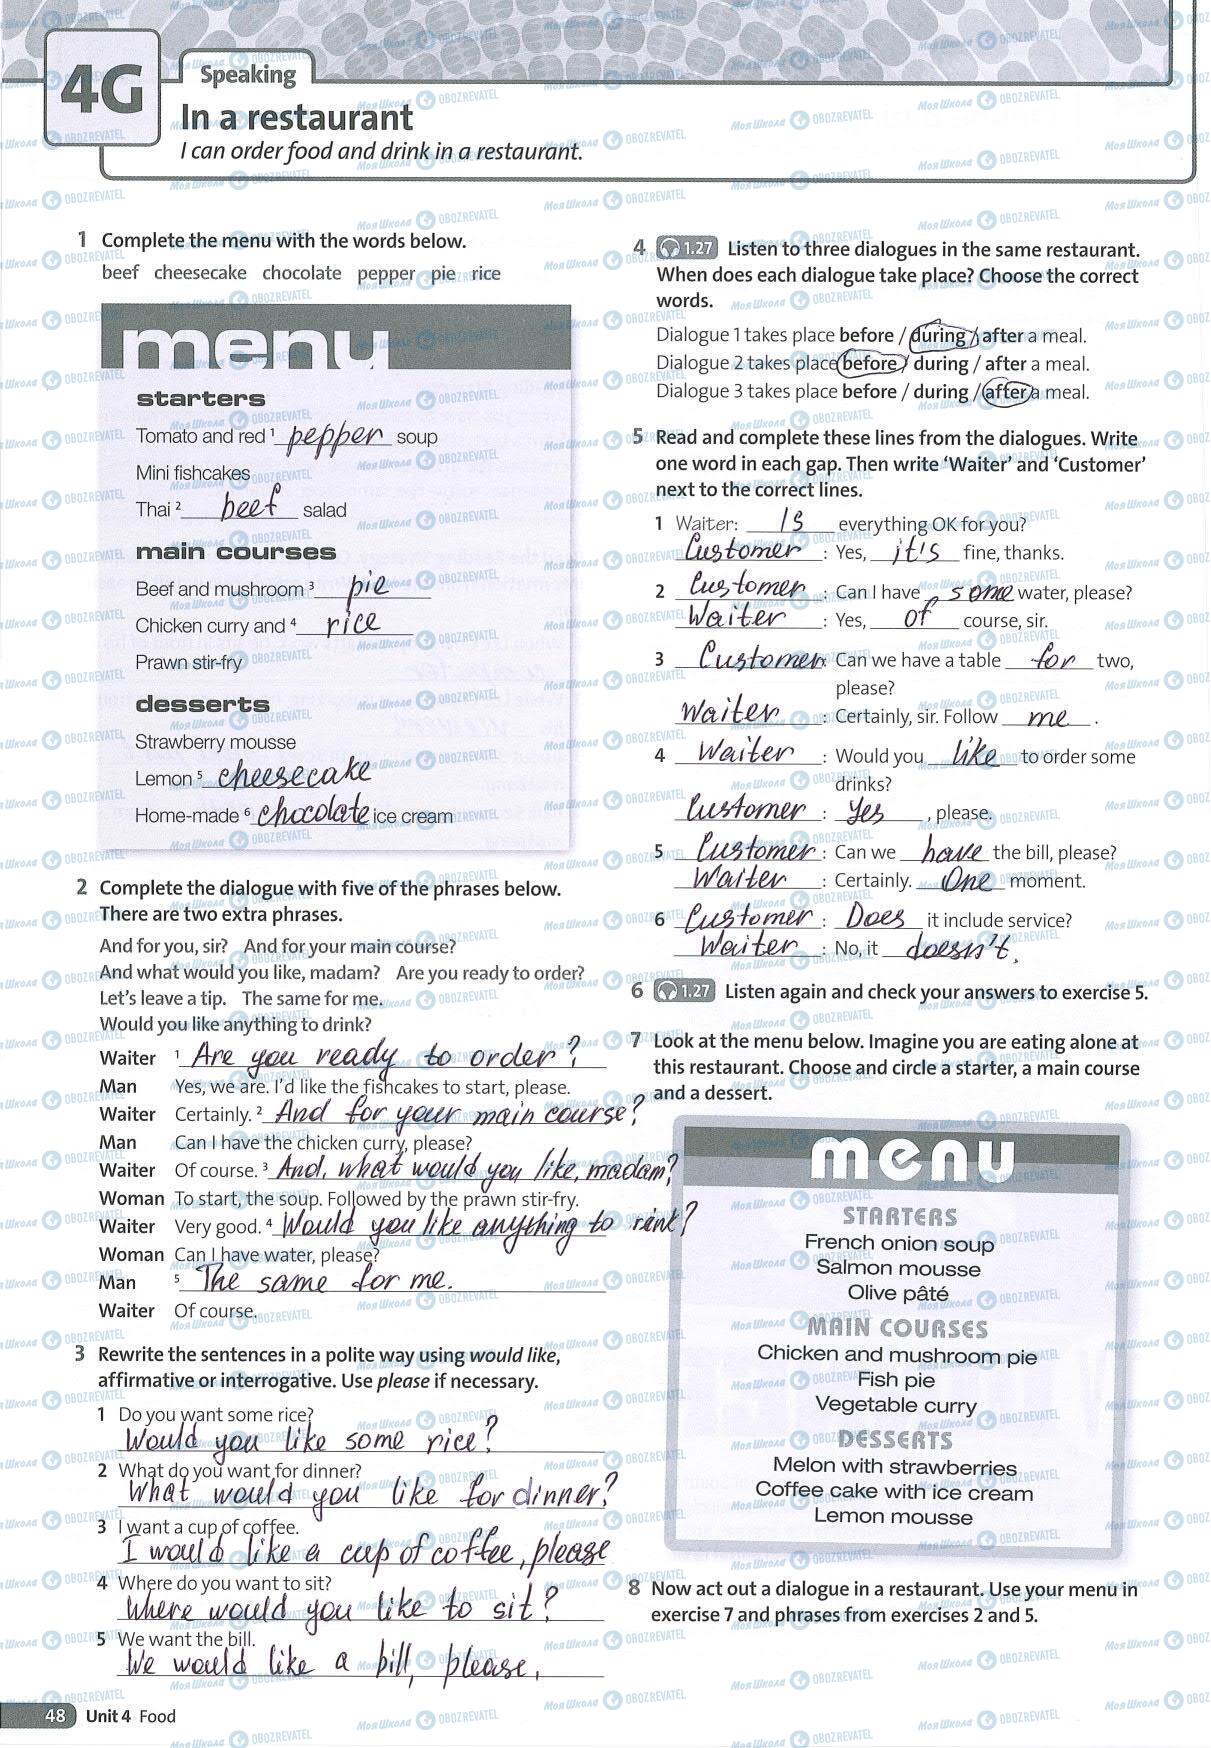 4G
Speaking
In a restaurant
I can order food and drink in a restaurant.
1 Complete the menu with the words below.
beef cheesecake chocolate pepper pie rice
menu
starters
Tomato and red 1 pepper soup
Mini fishcakes
Thai 2 beef salad
main courses
Beef and mushroom 3 pie
Chicken curry and 4 rice
Prawn stir-fry
desserts
Strawberry mousse
Lemon 5 cheesecake
Home-made 6 chocolate ice cream
2 Complete the dialogue with five of the phrases below.
There are two extra phrases.
And for you, sir? And for your main course?
And what would you like, madam? Are you ready to order?
Let's leave a tip. The same for me.
Would you like anything to drink?
Waiter 1 Are you ready to order?
Man Yes, we are. I'd like the fishcakes to start, please.
Waiter Certainly. 2 And for your main course?
Man Can I have the chicken curry, please?
Waiter Of course. 3 And, what would you like, madam?
Woman To start, the soup. Followed by the prawn stir-fry.
Waiter Very good. 4 Would you like anything to rink?
Woman Can I have water, please?
Man 5 The same for me.
Waiter Of course.
3 Rewrite the sentences in a polite way using would like,
affirmative or interrogative. Use please if necessary.
1 Do you want some rice?
Would you like some rice?
2 What do you want for dinner?
What would you like for dinner?
3 I want a cup of coffee.
I would like a cup of coffee, please
4 Where do you want to sit?
Where would you like to sit?
5 We want the bill.
We would like a bill, please.
48 Unit 4 Food
4 1.27 Listen to three dialogues in the same restaurant.
When does each dialogue take place? Choose the correct
words.
Dialogue 1 takes place before / during / after a meal.
Dialogue 2 takes place before / during / after a meal.
Dialogue 3 takes place before / during / after a meal.
5 Read and complete these lines from the dialogues. Write
one word in each gap. Then write 'Waiter' and 'Customer'
next to the correct lines.
1 Waiter: Is everything OK for you?
Customer : Yes, it's fine, thanks.
2 Customer : Can I have some water, please?
Waiter : Yes, of course, sir.
3 Customer : Can we have a table for two,
please?
Waiter : Certainly, sir. Follow me .
4 Waiter : Would you like to order some
drinks?
Customer : Yes , please.
5 Customer : Can we have the bill, please?
Waiter : Certainly. One moment.
6 Customer : Does it include service?
Waiter : No, it doesn't.
6 1.27 Listen again and check your answers to exercise 5.
7 Look at the menu below. Imagine you are eating alone at
this restaurant. Choose and circle a starter, a main course
and a dessert.
menu
STARTERS
French onion soup
Salmon mousse
Olive pâté
MAIN COURSES
Chicken and mushroom pie
Fish pie
Vegetable curry
DESSERTS
Melon with strawberries
Coffee cake with ice cream
Lemon mousse
8 Now act out a dialogue in a restaurant. Use your menu in
exercise 7 and phrases from exercises 2 and 5.
МояШкола OBOZREVATEL